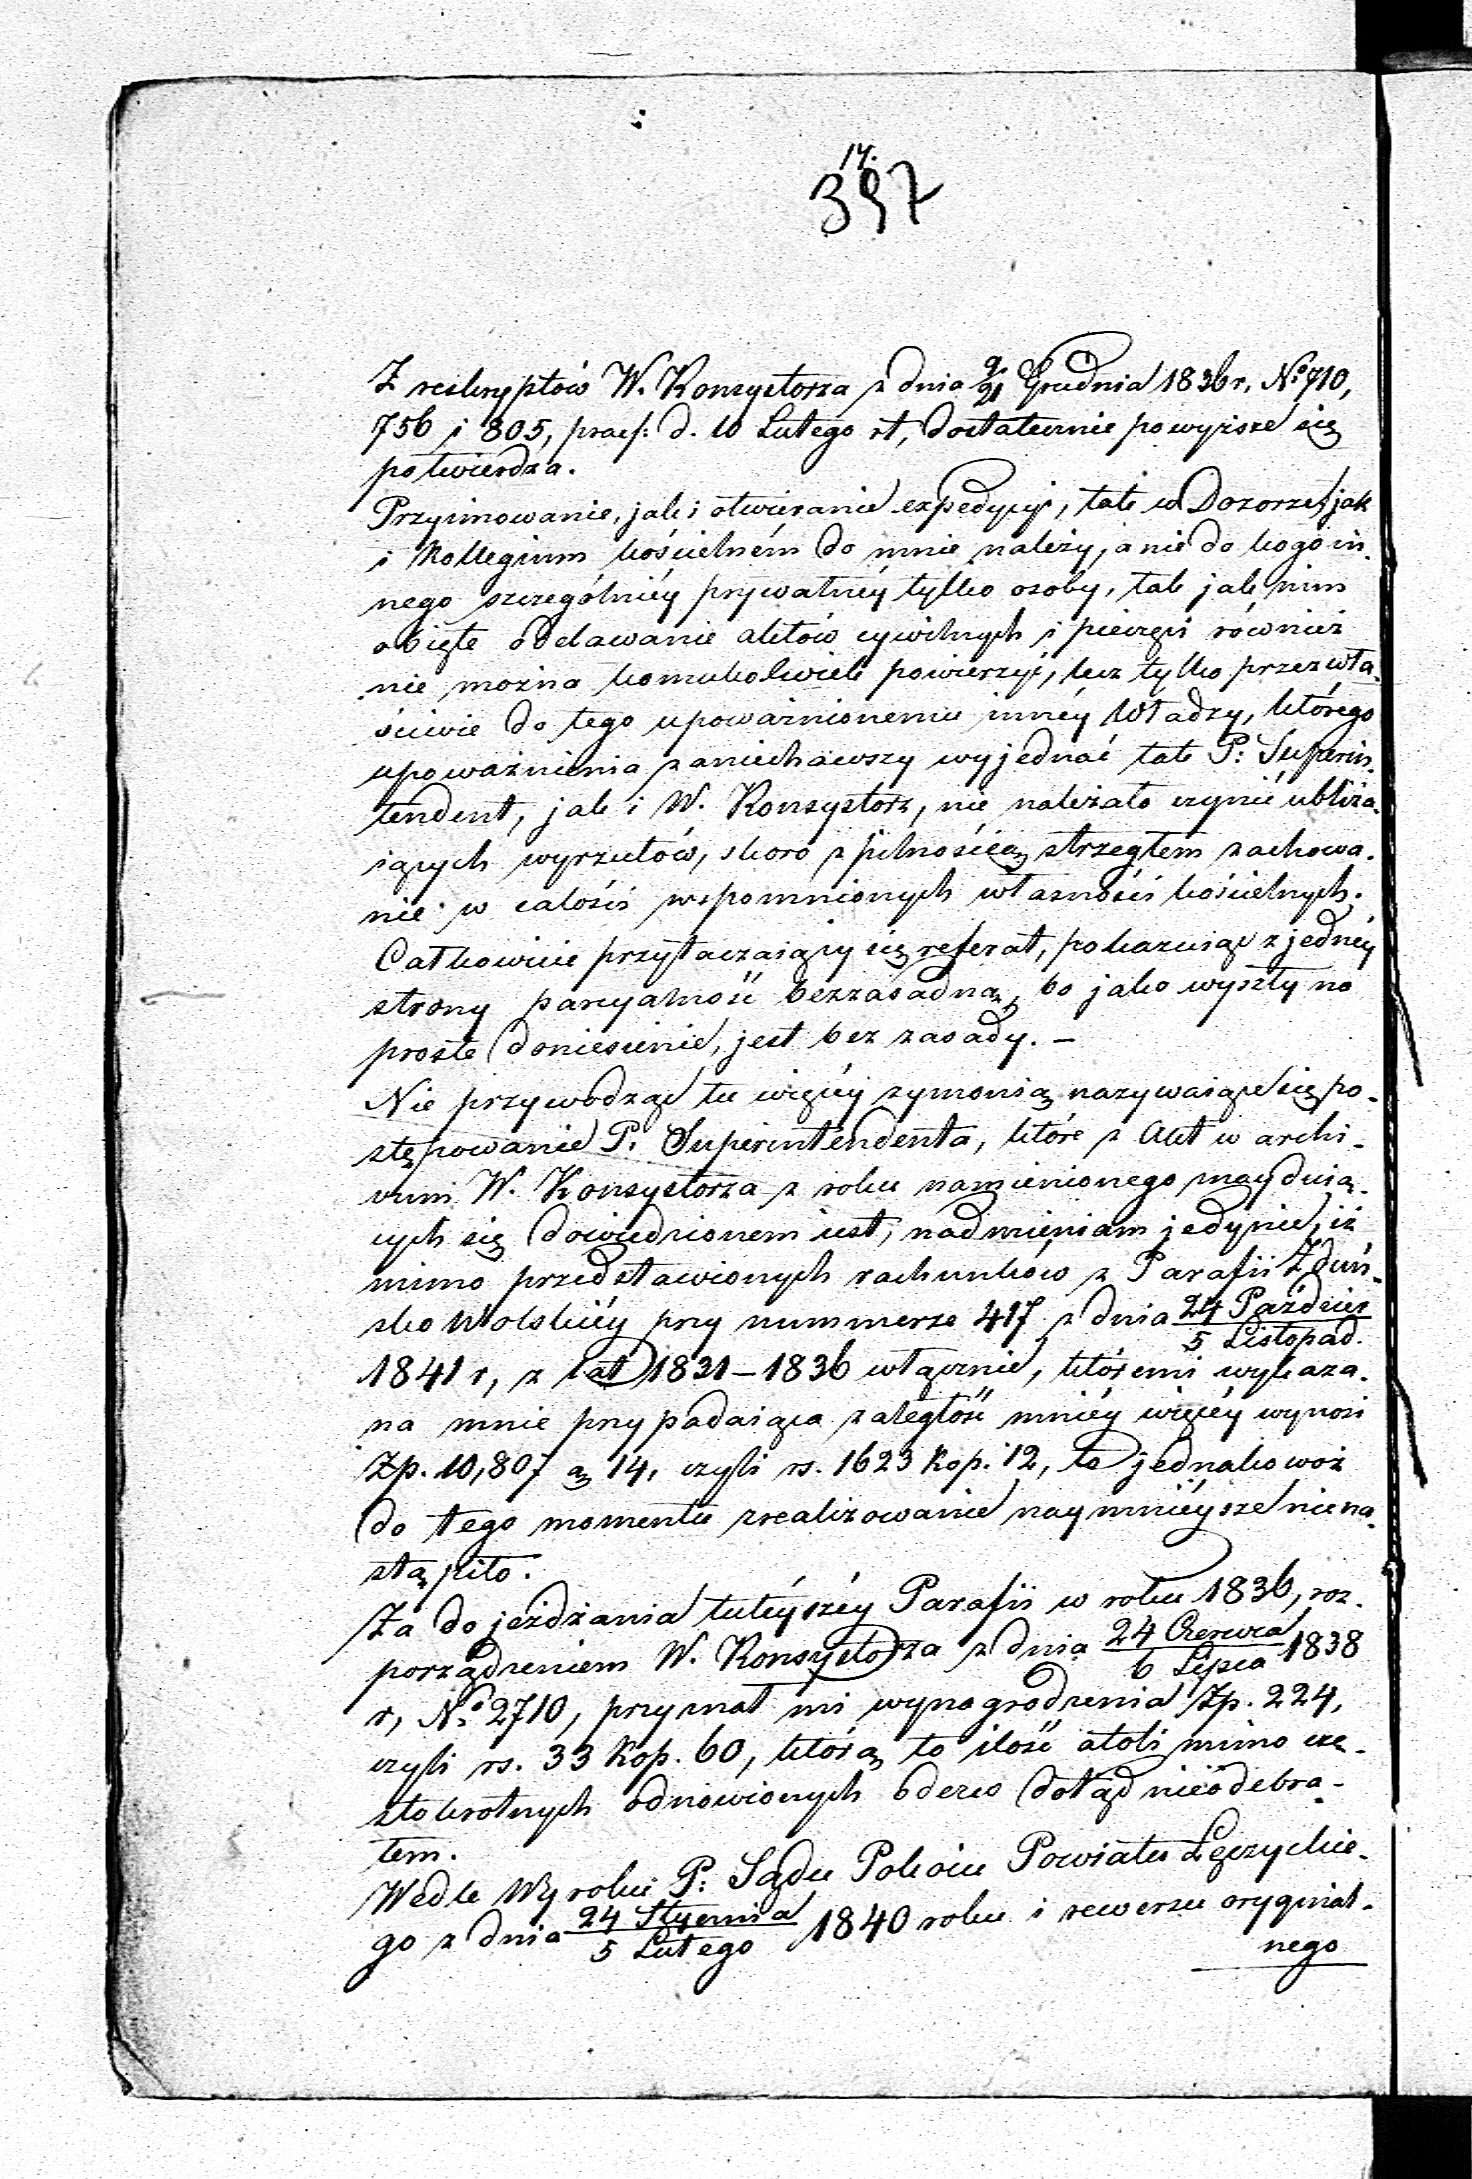 17.
397
Z reskryptów W. Konsystorza z dnia 9/21 Grudnia 1836 r, No 710,
756 i 805, praes: d. 10 Lutego rt, dostatecznie powyższe się
potwierdza.
Przyimowanie, jak i otwieranie expedycyi, tak w Dozorze, jak
i Kollegium kościelném do mnie należy, a nie do kogo in-
nego szczególniéy prywatnéy tylko osoby, tak jak nim
obięte oddawanie aktów cywilnych i pieczęci również
nie można komukolwiek powierzyć, lecz tylko przez wła-
ściwie do tego upoważnionemu innéy Władzy, którego
upoważnienia zaniechawszy wyjednać tak P: Superin-
tendent, jak i W. Konsystórz, nie należało czynić ubliża-
iących wyrzutów, skoro z pilnością strzegłem zachowa-
nie w całości wspomnionych własności kościelnych.
Całkowicie przytaczaiący się referat, pokazuiąc z jednéy
strony parcyalność bezzasadną, bo jako wyszły na
proste doniesienie, jest bez zasady. —
Nie przywodząc tu więcéy symonią nazywaiące się po-
stępowanie P. Superintendenta, które z Akt w archi-
vum W. Konsystorza z roku namienionego znayduią-
cych się dowiedzionem iest, nadmieniam jedynie, iż
mimo przedstawionych rachunków z Parafii Zduń-
sko Wolskiéy przy nummerze 417 z dnia 24 Paździer / 5 Listopad.
1841 r, z lat 1831—1836 włącznie, któremi wykaza-
na mnie przypadaiąca zaległość mniéy więcéy wynosi
Zp. 10,807 g 14, czyli rs. 1623 kop. 12, to jednakowoż
do tego momentu zrealizowanie naymniéysze niena-
stąpiło.
Za dojeżdżania tutéyszéy Parafii w roku 1836, roz-
porządzeniem W. Konsystorza z dnia 24 Czerwca / 6 Lipca 1838
r, No 2710, przyznał mi wynagrodzenia Zp. 224,
czyli rs. 33 kop. 60, którą to ilość atoli mimo czę-
stokrotnych odnowionych odezw dotąd nieodebra-
łem.
Wedle Wyroku P: Sądu Pokoiu Powiatu Łęczyckie-
go z dnia 24 Stycznia / 5 Lutego 1840 roku i rewersu oryginal-
nego